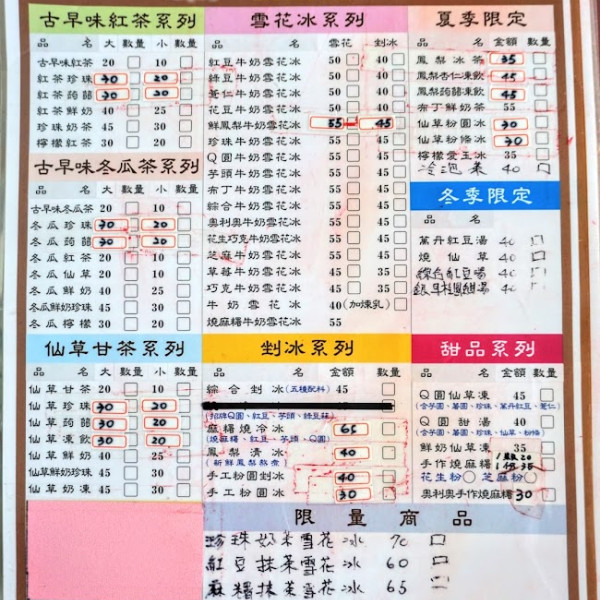 古早味紅茶系列
品 名 大 數量 小 數量
古早味紅茶 20 10
紅茶珍珠 30 20
紅茶蒟蒻 30 20
紅茶鮮奶 40 25
珍珠奶茶 45 30
檸檬紅茶 30 20
古早味冬瓜茶系列
品 名 大 數量 小 數量
古早味冬瓜茶 20 10
冬瓜珍珠 30 20
冬瓜蒟蒻 30 20
冬瓜紅茶 20 10
冬瓜仙草 20 10
冬瓜鮮奶 40 25
冬瓜鮮奶珍珠 45 30
冬瓜檸檬 30 20
仙草甘茶系列
品 名 大 數量 小 數量
仙草甘茶 20 10
仙草珍珠 30 20
仙草蒟蒻 30 20
仙草凍飲 30 20
仙草鮮奶 40 25
仙草鮮奶珍珠 45 30
仙草奶凍 45 30
雪花冰系列
品 名 雪花 剉冰
紅豆牛奶雪花冰 50 40
綠豆牛奶雪花冰 50 40
薏仁牛奶雪花冰 50 40
花豆牛奶雪花冰 50 40
鮮鳳梨牛奶雪花冰 55 45
珍珠牛奶雪花冰 55 45
Q圓牛奶雪花冰 55 45
芋頭牛奶雪花冰 55 45
布丁牛奶雪花冰 55 45
綜合牛奶雪花冰 55 45
奧利奧牛奶雪花冰 55 45
花生巧克牛奶雪花冰 55 45
芝麻牛奶雪花冰 55 45
草莓牛奶雪花冰 45 35
巧克牛奶雪花冰 45 35
牛奶雪花冰 40(加煉乳)
燒麻糬牛奶雪花冰 55
剉冰系列
品 名 金額 數量
綜合剉冰(五種配料) 45
(招牌Q圓、紅豆、芋頭、綠豆蒜)
麻糬燒冷冰 65
(燒麻糬、紅豆、芋頭、Q圓)
鳳梨清冰 40
(新鮮鳳梨熬煮)
手工粉圓剉冰 40
手工粉圓冰 30
夏季限定
品 名 金額 數量
鳳梨冰茶 35
鳳梨杏仁凍飲 45
鳳梨蒟蒻凍飲 45
布丁鮮奶茶 55
仙草粉圓冰 30
仙草粉條冰 30
檸檬愛玉冰 35
冷泡茶 40
冬季限定
品 名 金額 數量
萬丹紅豆湯 40
燒仙草 40
綜合紅豆湯 40
40
甜品系列
品 名 金額 數量
Q圓仙草凍 45
(含芋圓、薯圓、珍珠、萬丹紅豆、薏仁)
Q圓甜湯 40
(含芋圓、薯圓、珍珠、仙草、粉條)
鮮奶仙草凍 35
手作燒麻糬 1顆20 1份35
花生粉 芝麻粉
奧利奧手作燒麻糬 30
限量商品
珍珠奶茶雪花冰 70
紅豆抹茶雪花冰 60
麻糬抹茶雪花冰 65